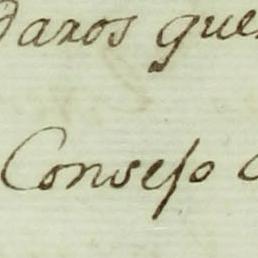 daros que
Consejo